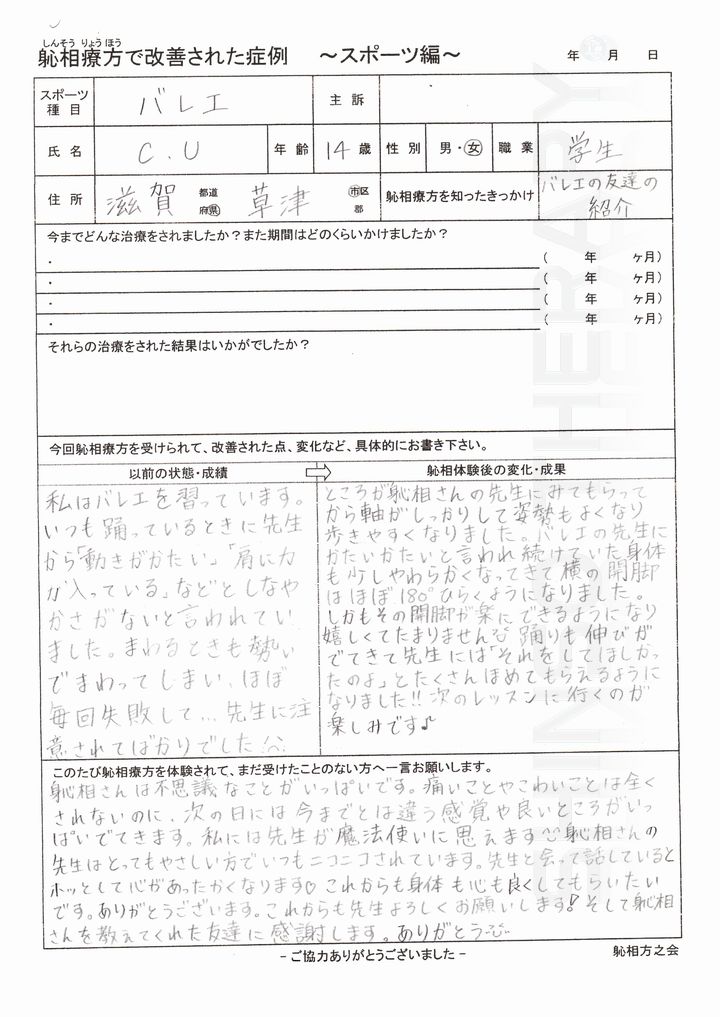 しんそう りょうほう
躮相療方で改善された症例 ～スポーツ編～ 年 月 日
スポーツ種目 バレエ 主訴
氏名 C.U 年齢 14歳 性別 男・女 職業 学生
住所 滋賀 都道府県 草津 市区郡 躮相療方を知ったきっかけ バレエの友達の紹介
今までどんな治療をされましたか？また期間はどのくらいかけましたか？
・ ( 年 ヶ月)
・ ( 年 ヶ月)
・ ( 年 ヶ月)
・ ( 年 ヶ月)
それらの治療をされた結果はいかがでしたか？
今回躮相療方を受けられて、改善された点、変化など、具体的にお書き下さい。
以前の状態・成績
私はバレエを習っています。
いつも踊っているときに先生
から「動きがかたい」「肩に力
が入っている」などとしなや
かさがないと言われてい
ました。まわるときも勢い
でまわってしまい、ほぼ
毎回失敗して…先生に注
意されてばかりでした
躮相体験後の変化・成果
ところが躮相さんの先生にみてもらって
から軸がしっかりして姿勢もよくなり
歩きやすくなりました。バレエの先生に
かたいかたいと言われ続けていた身体
も少しやわらかくなってきて横の開脚
はほぼ180°ひらくようになりました。
しかもその開脚が楽にできるようになり
嬉しくてたまりません 踊りも伸びが
でてきて先生には「それをしてほしかっ
たのよ」とたくさんほめてもらえるように
なりました!!次のレッスンに行くのが
楽しみです♪
このたび躮相療方を体験されて、まだ受けたことのない方へ一言お願いします。
躮相さんは不思議なことがいっぱいです。痛いことやこわいことは全く
されないのに、次の日には今までとは違う感覚や良いところがいっ
ぱいでてきます。私には先生が魔法使いに思えます 躮相さんの
先生はとってもやさしい方でいつもニコニコされています。先生と会って話していると
ホッとして心があったかくなります♡ これからも身体も心も良くしてもらいたい
です。ありがとうございます。これからも先生よろしくお願いします！そして躮相
さんを教えてくれた友達に感謝します。ありがとう
- ご協力ありがとうございました - 躮相方之会